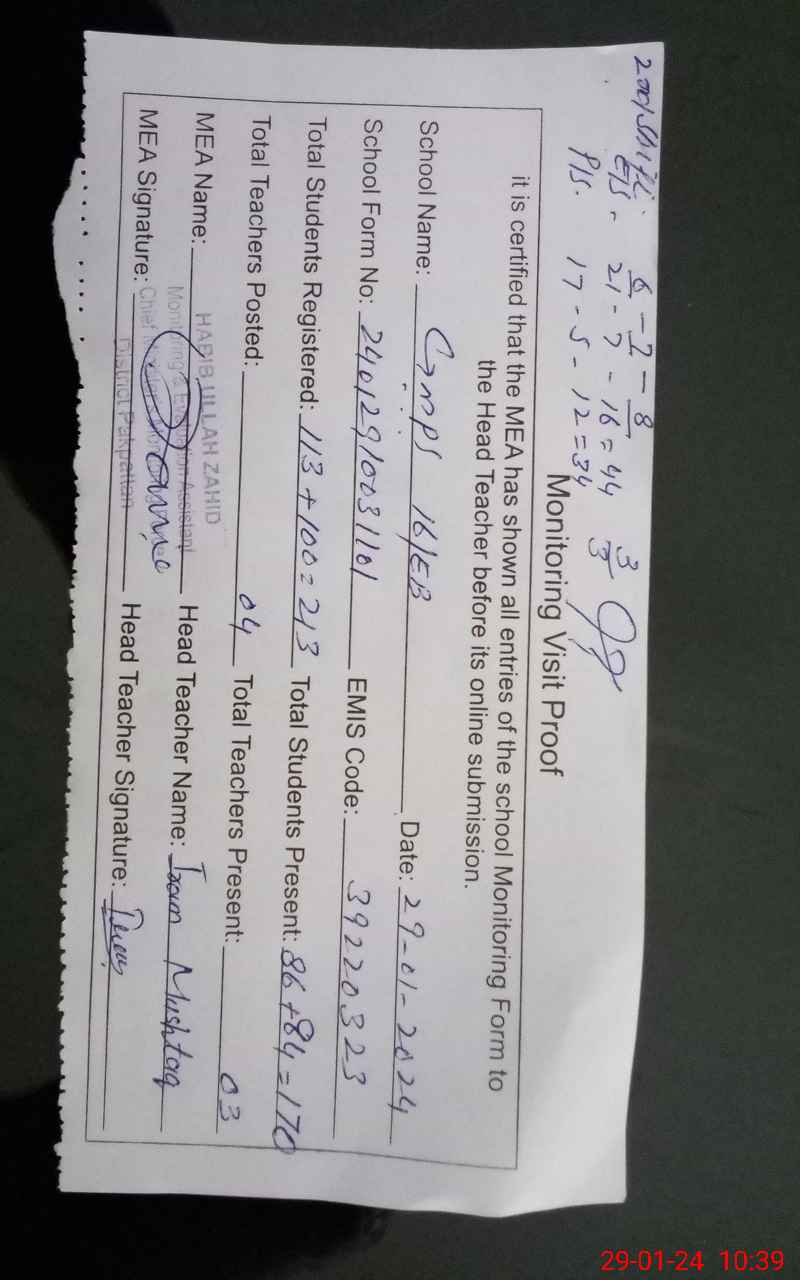 6 - 7 - 8
E/S - 21 - 7 - 16 = 44 3/3
P/S. 17 - 5 - 12 = 34
Monitoring Visit Proof
it is certified that the MEA has shown all entries of the school Monitoring Form to
the Head Teacher before its online submission.
School Name: GMPS 16/EB Date: 29-01-2024
School Form No: 24012910031101 EMIS Code: 39220323
Total Students Registered: 113+100=213 Total Students Present: 86+84=170
Total Teachers Posted: 04 Total Teachers Present: 03
HABIB ULLAH ZAHID
MEA Name: Head Teacher Name: Iram Mushtaq
Monitoring & Evaluation Assistant
MEA Signature: Head Teacher Signature:
District Pakpattan
29-01-24 10:39